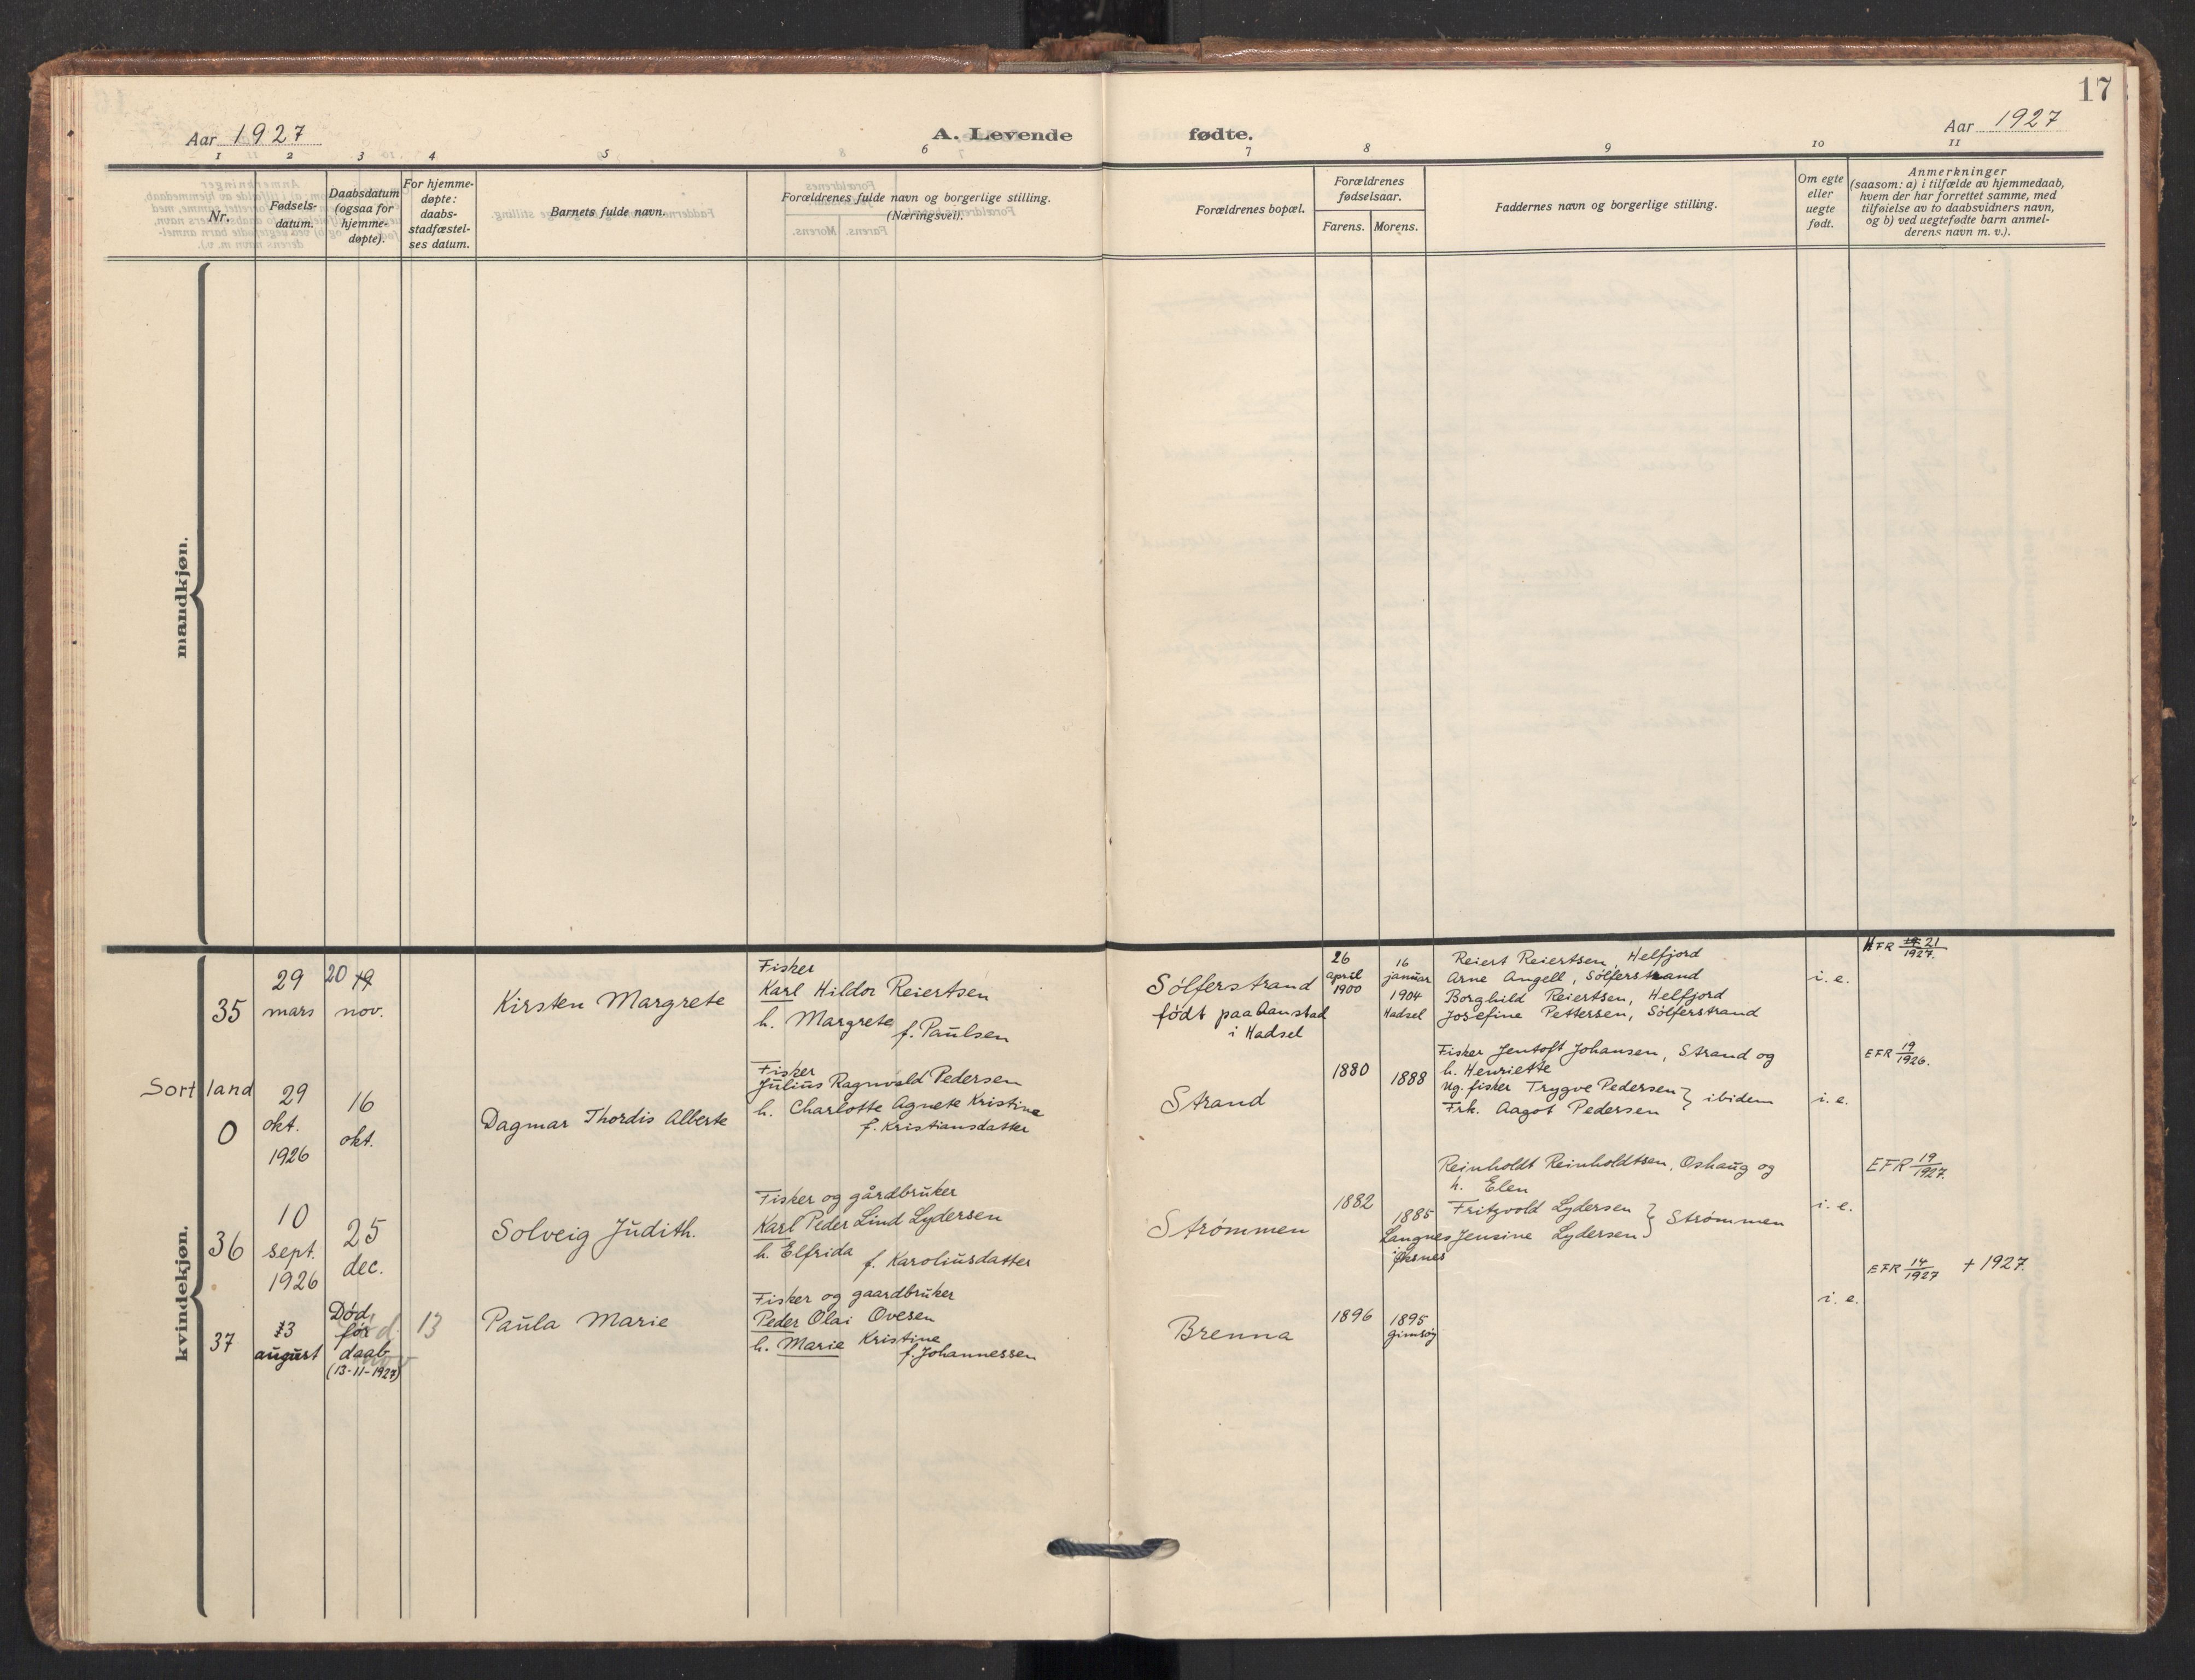 17
Aar 1927
A. Levende fødte.
Aar 1927
1 2 3 4 5 6 7 8 9 10 11
Nr.
Fødsels-
datum.
Daabsdatum
(ogsaa for
hjemme-
døpte).
For hjemme-
døpte:
daabs-
stadfæstel-
ses datum.
Barnets fulde navn.
Forældrenes fulde navn og borgerlige stilling.
(Næringsvei).
Forældrenes bopæl.
Forældrenes
fødselsaar.
Farens. Morens.
Faddernes navn og borgerlige stilling.
Om egte
eller
uegte
født.
Anmerkninger
(saasom: a) i tilfælde av hjemmedaab,
hvem der har forrettet samme, med
tilføielse av to daabsvidners navn,
og b) ved uegtefødte barn anmel-
derens navn m. v.).
mandkjøn.
kvindekjøn.
35
29
mars
20 19
nov.
Kirsten Margrete
Fisker
Karl Hildor Reiertsen
h. Margrete
f. Paulsen
Sølferstrand
født paa Aanstad
i Hadsel
26
april
1900
16
januar
1904
Hadsel
Reiert Reiertsen, Helfjord
Arne Angell, Sølferstrand
Borghild Reiertsen, Helfjord
Josefine Pettersen, Sølferstrand
i. e.
FR 21
1927.
Sortland
0
29
okt.
1926
16
okt.
Dagmar Thordis Alberte
Fisker
Julius Ragnvald Pedersen
h. Charlotte Agnete Kristine
f. Kristiansdatter
Strand
1880
1888
Fisker Jentoft Johansen, Strand og
h. Henriette
Ug. fisker Trygve Pedersen } ibidem
Frk. Aagot Pedersen
i. e.
EFR 19
1926.
36
10
sept.
1926
25
dec.
Solveig Judith.
Fisker og gårdbruker
Karl Peder Lind Lydersen
h. Elfrida
f. Karoliusdatter
Strømmen
1882
1885
Langnes
i Øksnes
Reinholdt Reinholdtsen, Oshaug og
h. Elen
Fritzvold Lydersen } Strømmen
Jensine Lydersen
i. e.
EFR 19
1927.
37
13
august
Død
før
daab
(13-11-1927)
13
Paula Marie
Fisker og gaardbruker
Peder Olai Ovesen
h. Marie Kristine
f. Johannessen
Brenna
1896
1895
Gimsøy
i. e.
EFR 14
1927
+ 1927.